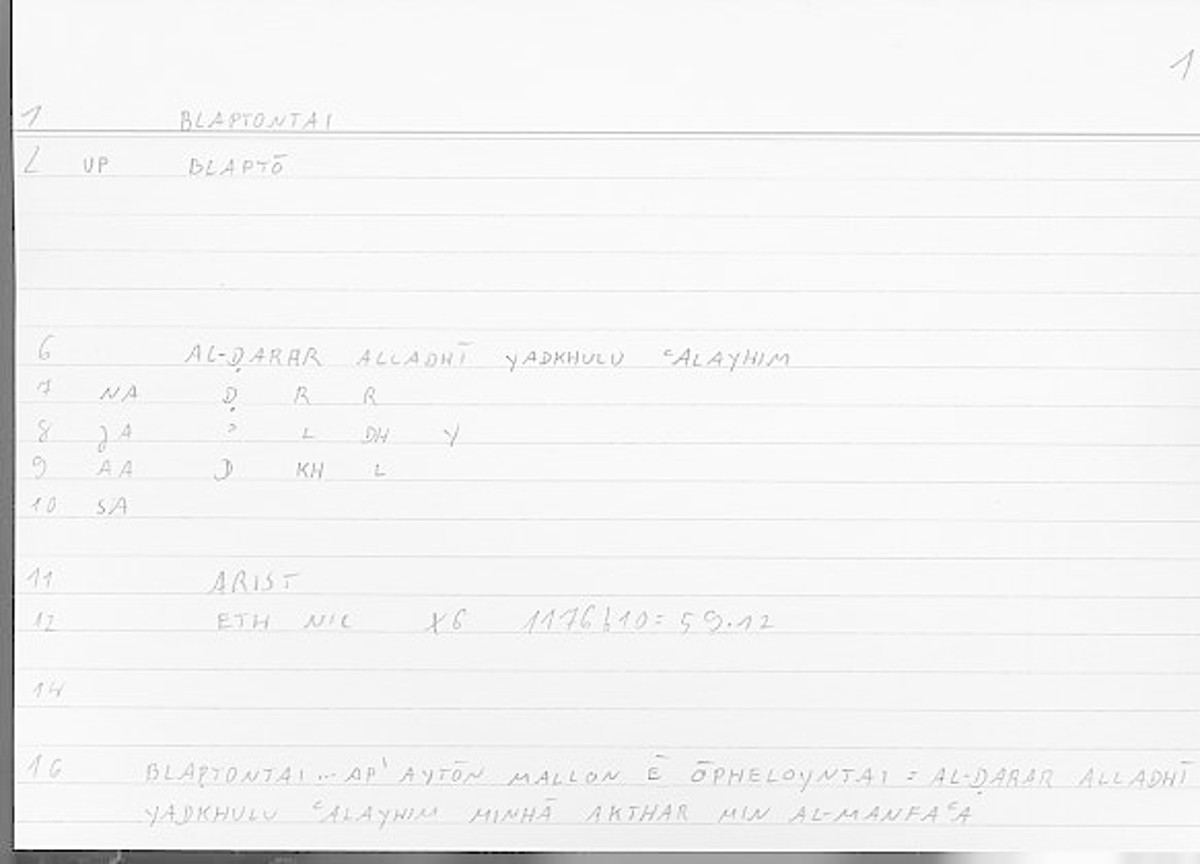 1
1 BLAPTONTAI
2 UP BLAPTŌ
6 AL-ḌARAR ALLADHĪ YADKHULU ʿALAYHIM
7 NA Ḍ R R
8 JA ʾ L DH Y
9 AA D KH L
10 SA
11 ARIST
12 ETH NIC X6 1176b10 = 59.12
14
16 BLAPTONTAI ... AP' AYTŌN MALLON Ē ŌPHELOYNTAI = AL-ḌARAR ALLADHĪ
YADKHULU ʿALAYHIM MINHĀ AKTHAR MIN AL-MANFAʿA